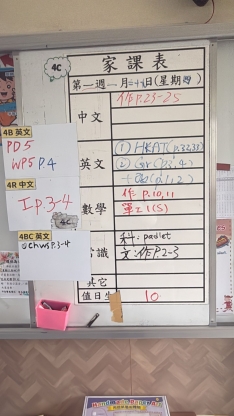 4C
家課表
第一週一月十一日(星期四)
中文
作P.23-25
4B 英文
PD5
WP5 P.4
英文
(1) HKAT(P.32,33)
(2) Gr(P.3,4)
4R 中文
工P.3-4
數學
作 P.10,11
單元1(5)
4BC 英文
chws P.3-4
常識
科: padlet
文:作P.2-3
其它
值日生
10